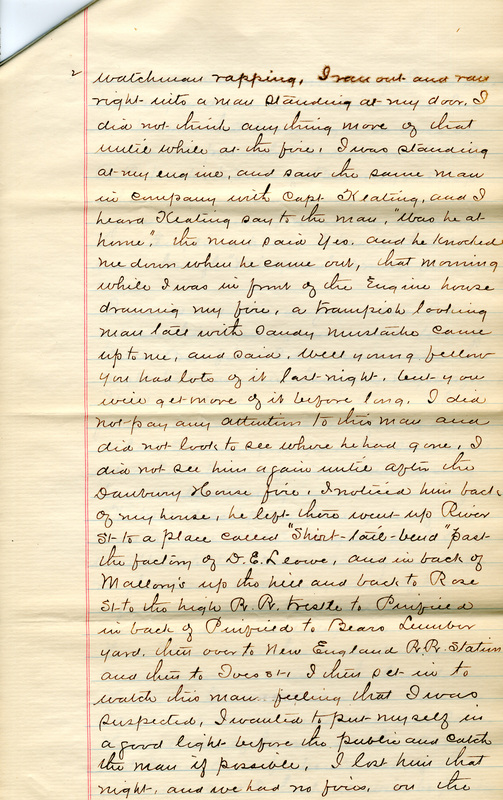 2
watchman rapping, I ran out and ran
right into a man standing at my door. I
did not think any thing more of that
until while at the fire, I was standing
at my engine, and saw the same man
in company with Capt Keating, and I
heard Keating say to the man, "Was he at
home", the man said Yes. and he Knocked
me down when he came out, that morning
while I was in front of the Engine house
drawing my fire, a trampish looking
man tall with Sandy mustache came
up to me, and said. Well young fellow
you had lots of it last night, but you
will get more of it before long. I did
not pay any attention to this man and
did not look to see where he had gone, I
did not see him again until after the
Danbury House fire, I noticed him back
of my house, he left there went up River
St to a place called "Shirt-tail-bend" past
the factory of D.E. Leowe, and in back of
Mallory's up the hill and back to Rose
St to the high R.R. trestle to
in back of to Bears Lumber
yard. then over to New England R.R. Station
and then to Ives St, I then set in to
watch this man feeling that I was
suspected, I wanted to put myself in
a good light before the public and catch
the man if possible, I lost him that
night, and we had no fires. on the